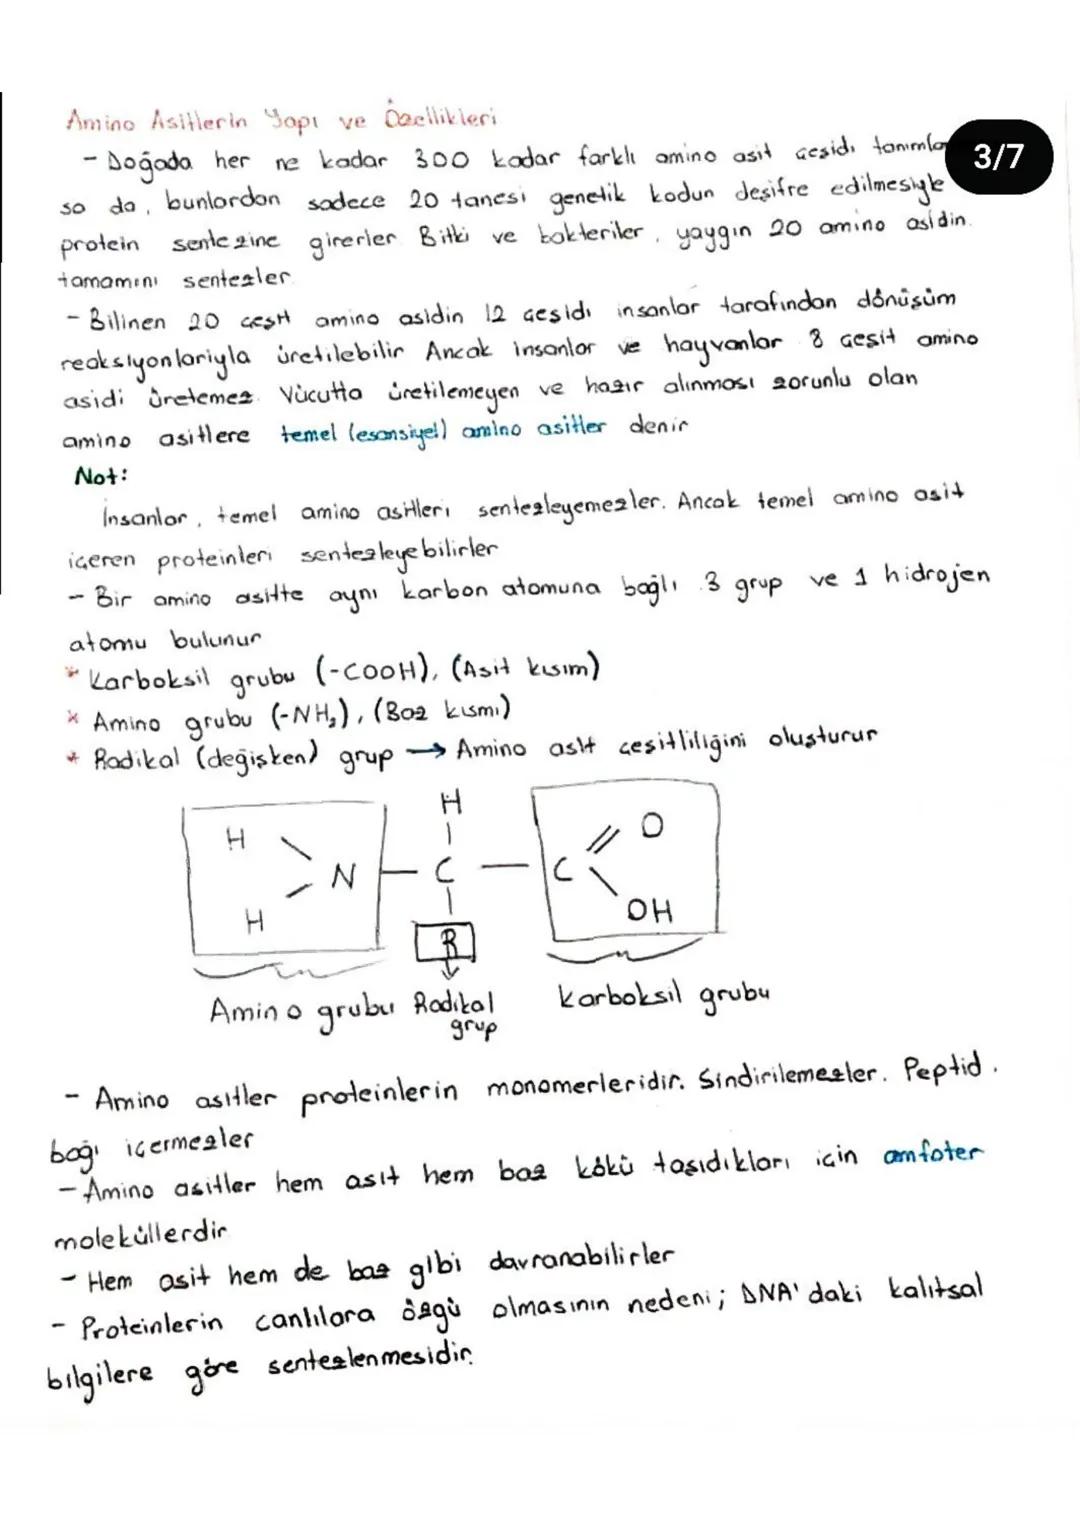 Amino Asitlerin Yapı ve Özellikleri
- Doğada her ne kadar 300 kadar farklı amino asit çeşidi tanımlan
3/7
sa da, bunlardan sadece 20 tanesi genetik kodun deşifre edilmesiyle
protein sentezine girerler. Bitki ve bakteriler, yaygın 20 amino asidin
tamamını sentezler
- Bilinen 20 çeşit amino asidin 12 çeşidi insanlar tarafından dönüşüm
reaksiyonlarıyla üretilebilir Ancak insanlar ve hayvanlar 8 çeşit amino
asidi üretemez. Vücutta üretilemeyen ve hazır alınması zorunlu olan
amino asitlere temel (esansiyel) amino asitler denir
Not:
İnsanlar, temel amino asitleri sentezleyemezler. Ancak temel amino asit
içeren proteinleri sentezleyebilirler
- Bir amino asitte aynı karbon atomuna bağlı 3 grup ve 1 hidrojen
atomu bulunur
* Karboksil grubu (-COOH), (Asit kısım)
* Amino grubu (-NH₂), (Baz kısmı)
* Radikal (değişken) grup → Amino asit çeşitliliğini oluşturur
H
H
O
N
C
C
H
OH
R
Amino grubu
Radikal
grup
Karboksil grubu
- Amino asitler proteinlerin monomerleridir. Sindirilemezler. Peptid.
bağı içermezler
- Amino asitler hem asit hem baz kökü taşıdıkları için amfoter
moleküllerdir
- Hem asit hem de baz gibi davranabilirler
- Proteinlerin canlılara özgü olmasının nedeni; DNA'daki kalıtsal
bilgilere göre sentezlenmesidir.